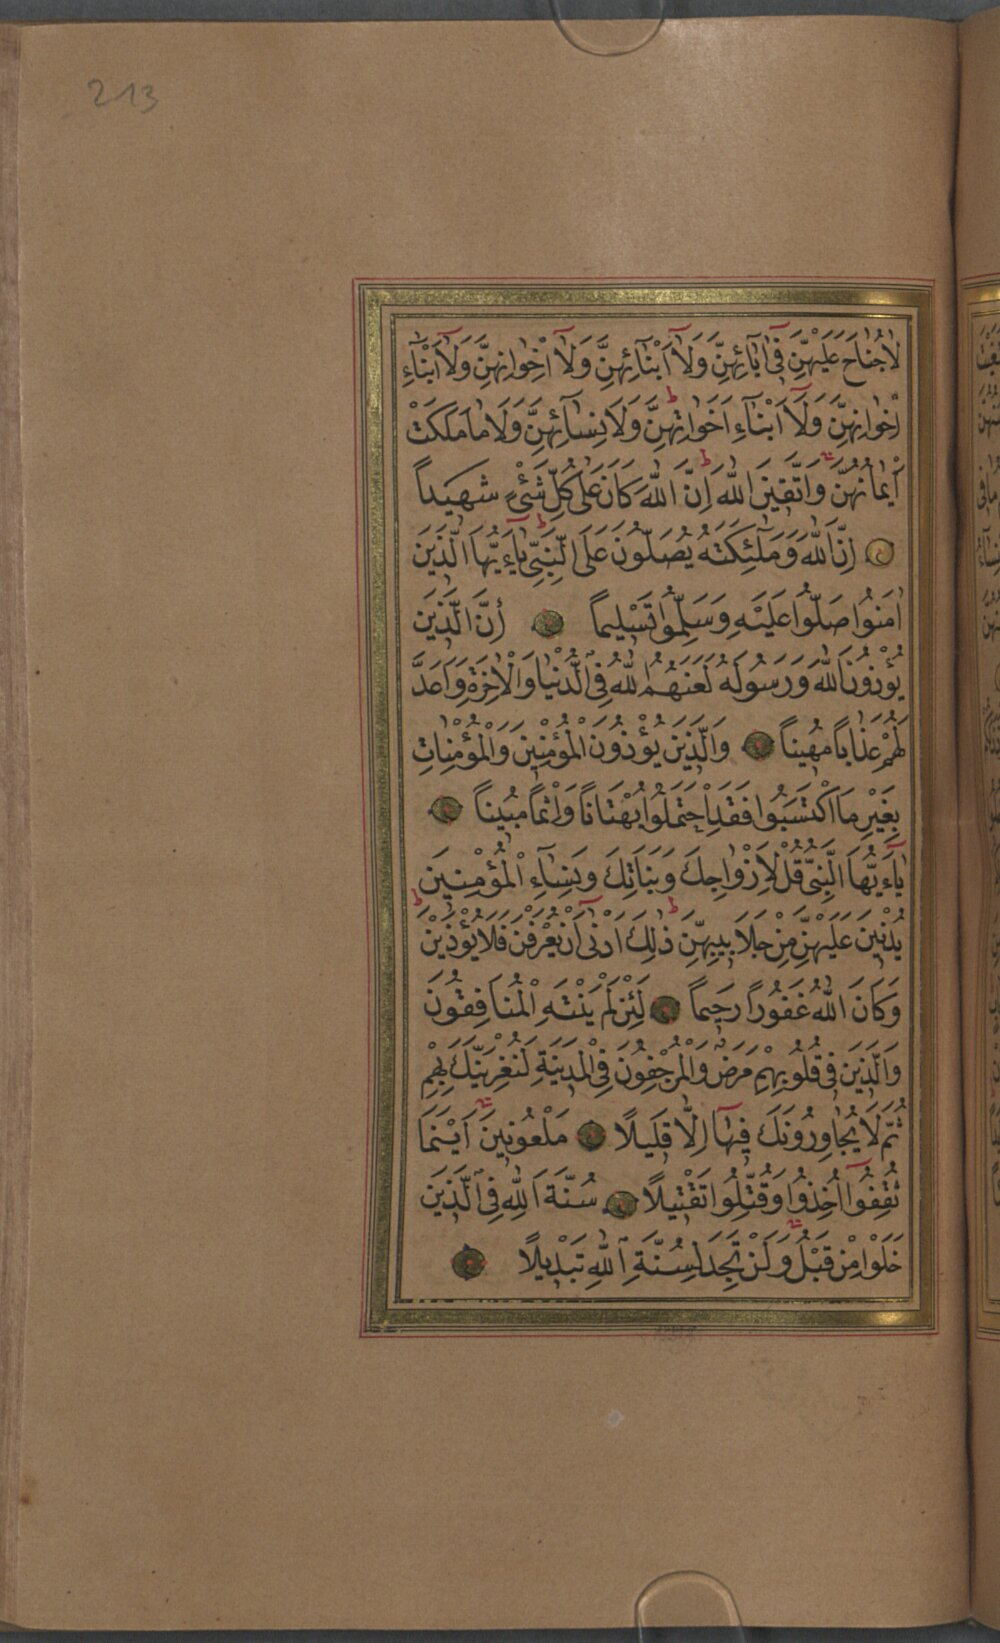 213
لَا جُنَاحَ عَلَيْهِنَّ فِٓى اٰبَٓائِهِنَّ وَلَٓا اَبْنَٓائِهِنَّ وَلَٓا اِخْوَانِهِنَّ وَلَٓا اَبْنَٓاءِ
اِخْوَانِهِنَّ وَلَٓا اَبْنَٓاءِ اَخَوَاتِهِنَّ وَلَا نِسَٓائِهِنَّ وَلَا مَا مَلَكَتْ
اَيْمَانُهُنَّ وَاتَّقِينَ اللّٰهَ اِنَّ اللّٰهَ كَانَ عَلٰى كُلِّ شَىْءٍ شَهِيداً
اِنَّ اللّٰهَ وَمَلٰٓئِكَتَهُ يُصَلُّونَ عَلَى النَّبِىِّ يَٓا ءَيُّهَا الَّذِينَ
اٰمَنُوا صَلُّوا عَلَيْهِ وَسَلِّمُوا تَسْلِيماً اِنَّ الَّذِينَ
يُؤْذُونَ اللّٰهَ وَرَسُولَهُ لَعَنَهُمُ اللّٰهُ فِى الدُّنْيَا وَالْاٰخِرَةِ وَاَعَدَّ
لَهُمْ عَذَاباً مُهِيناً وَالَّذِينَ يُؤْذُونَ الْمُؤْمِنِينَ وَالْمُؤْمِنَاتِ
بِغَيْرِ مَا اكْتَسَبُوا فَقَدِ احْتَمَلُوا بُهْتَاناً وَاِثْماً مُبِيناً
يَٓا ءَيُّهَا النَّبِىُّ قُلْ لِاَزْوَاجِكَ وَبَنَاتِكَ وَنِسَٓاءِ الْمُؤْمِنِينَ
يُدْنِينَ عَلَيْهِنَّ مِنْ جَلَابِيبِهِنَّ ذٰلِكَ اَدْنٰٓى اَنْ يُعْرَفْنَ فَلَا يُؤْذَيْنَ
وَكَانَ اللّٰهُ غَفُوراً رَحِيماً لَئِنْ لَمْ يَنْتَهِ الْمُنَافِقُونَ
وَالَّذِينَ فِى قُلُوبِهِمْ مَرَضٌ وَالْمُرْجِفُونَ فِى الْمَدِينَةِ لَنُغْرِيَنَّكَ بِهِمْ
ثُمَّ لَا يُجَاوِرُونَكَ فِيهَٓا اِلَّا قَلِيلًا مَلْعُونِينَ اَيْنَمَا
ثُقِفُٓوا اُخِذُوا وَقُتِّلُوا تَقْتِيلًا سُنَّةَ اللّٰهِ فِى الَّذِينَ
خَلَوْا مِنْ قَبْلُ وَلَنْ تَجِدَ لِسُنَّةِ اللّٰهِ تَبْدِيلًا